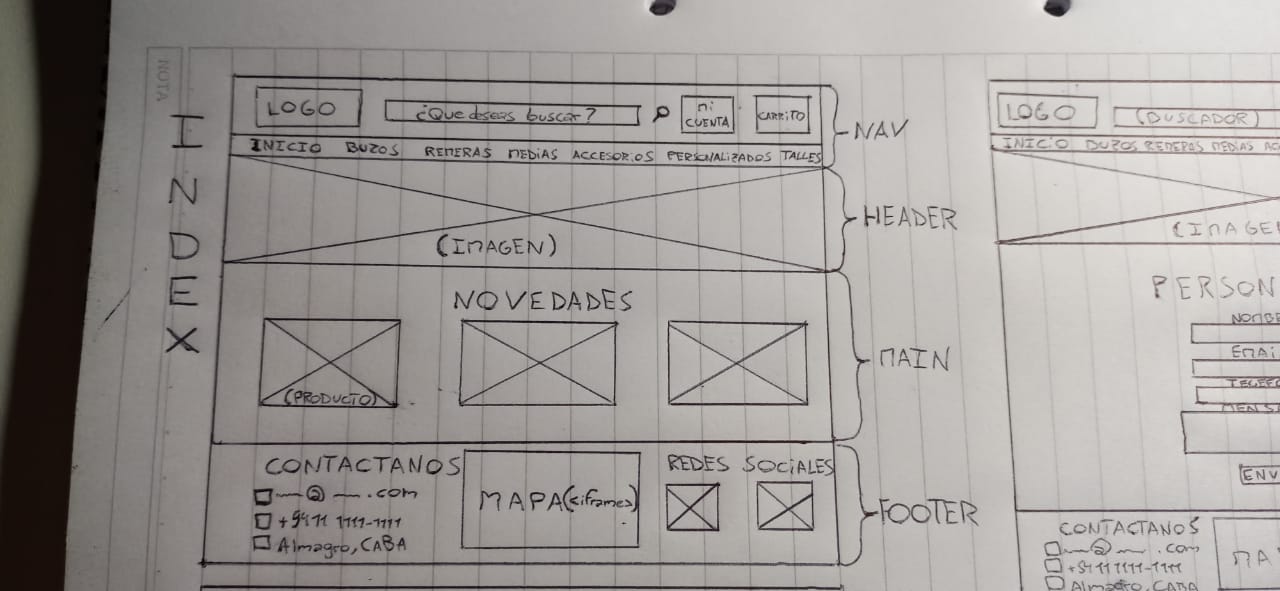 NOTA
INDEX
LOGO
¿Que deseas buscar?
Mi
CUENTA
CARRITO
NAV
INICIO BUZOS REMERAS MEDIAS ACCESORIOS PERSONALIZADOS TALLES
(IMAGEN)
HEADER
NOVEDADES
(PRODUCTO)
MAIN
CONTACTANOS
@ .com
+5411 1111-1111
Almagro, CABA
MAPA(iframes)
REDES SOCIALES
FOOTER
LOGO
(BUSCADOR)
INICIO BUZOS REMERAS MEDIAS AC
(IMAGE
PERSON
NOMB
EMAI
TELEF
MENS
ENV
CONTACTANOS
@ .com
+5411 1111-1111
Almagro, CABA
MA